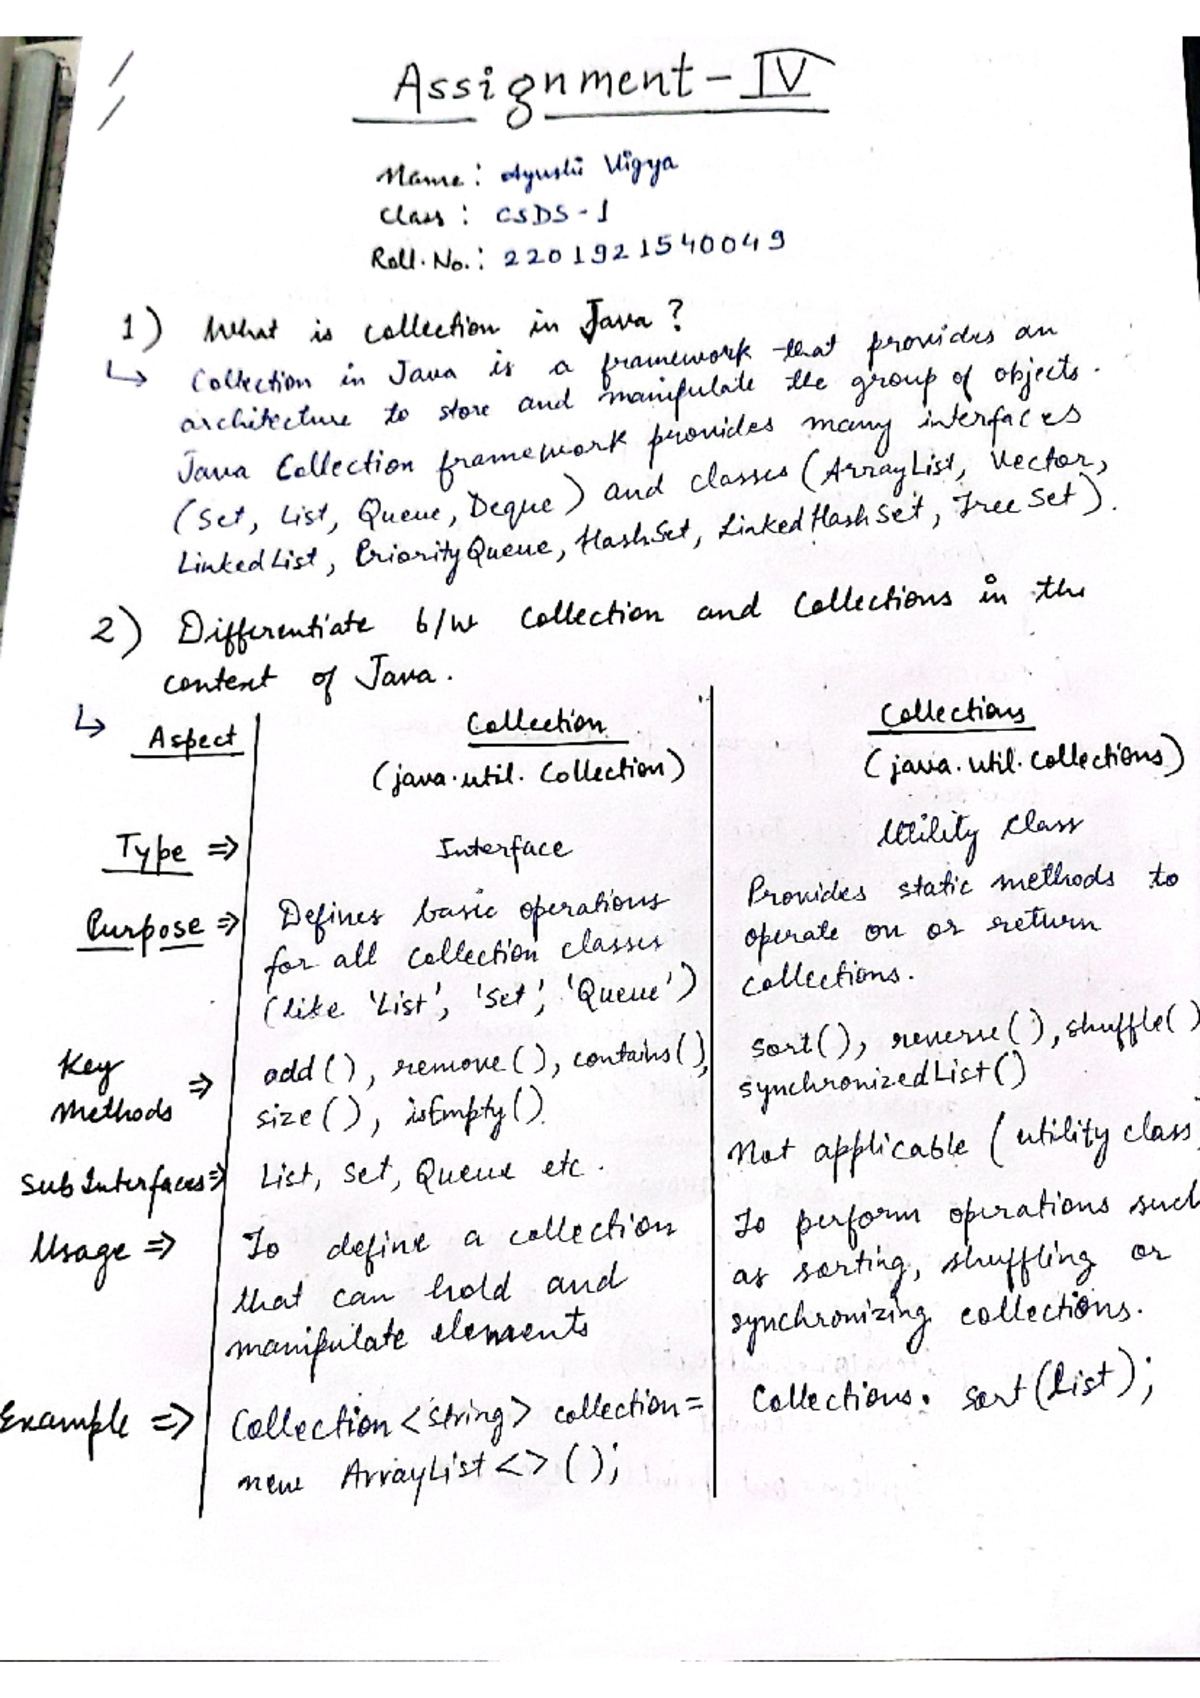 Assignment - IV
Name: Ayushi Vigya
Class: CSDS-1
Roll. No.: 2201921540049
1) What is collection in Java?
↳ Collection in Java is a framework that provides an
architecture to store and manipulate the group of objects.
Java Collection framework provides many interfaces
(Set, List, Queue, Deque) and classes (ArrayList, Vector,
LinkedList, PriorityQueue, HashSet, LinkedHashSet, TreeSet).
2) Differentiate b/w Collection and Collections in the
context of Java.
↳ Aspect Collection Collections
(java.util.Collection) (java.util.Collections)
Type ⇒ Interface Utility Class
Purpose ⇒ Defines basic operations
for all collection classes
(like 'List', 'Set', 'Queue')
Provides static methods to
operate on or return
collections.
Key
Methods ⇒ add(), remove(), contains(),
size(), isEmpty().
sort(), reverse(), shuffle()
synchronizedList()
Sub Interfaces ⇒ List, Set, Queue etc.
Not applicable (utility class
Usage ⇒ To define a collection
that can hold and
manipulate elements
To perform operations such
as sorting, shuffling or
synchronizing collections.
Example ⇒ Collection<String> collection =
new ArrayList<>();
Collections.sort(list);